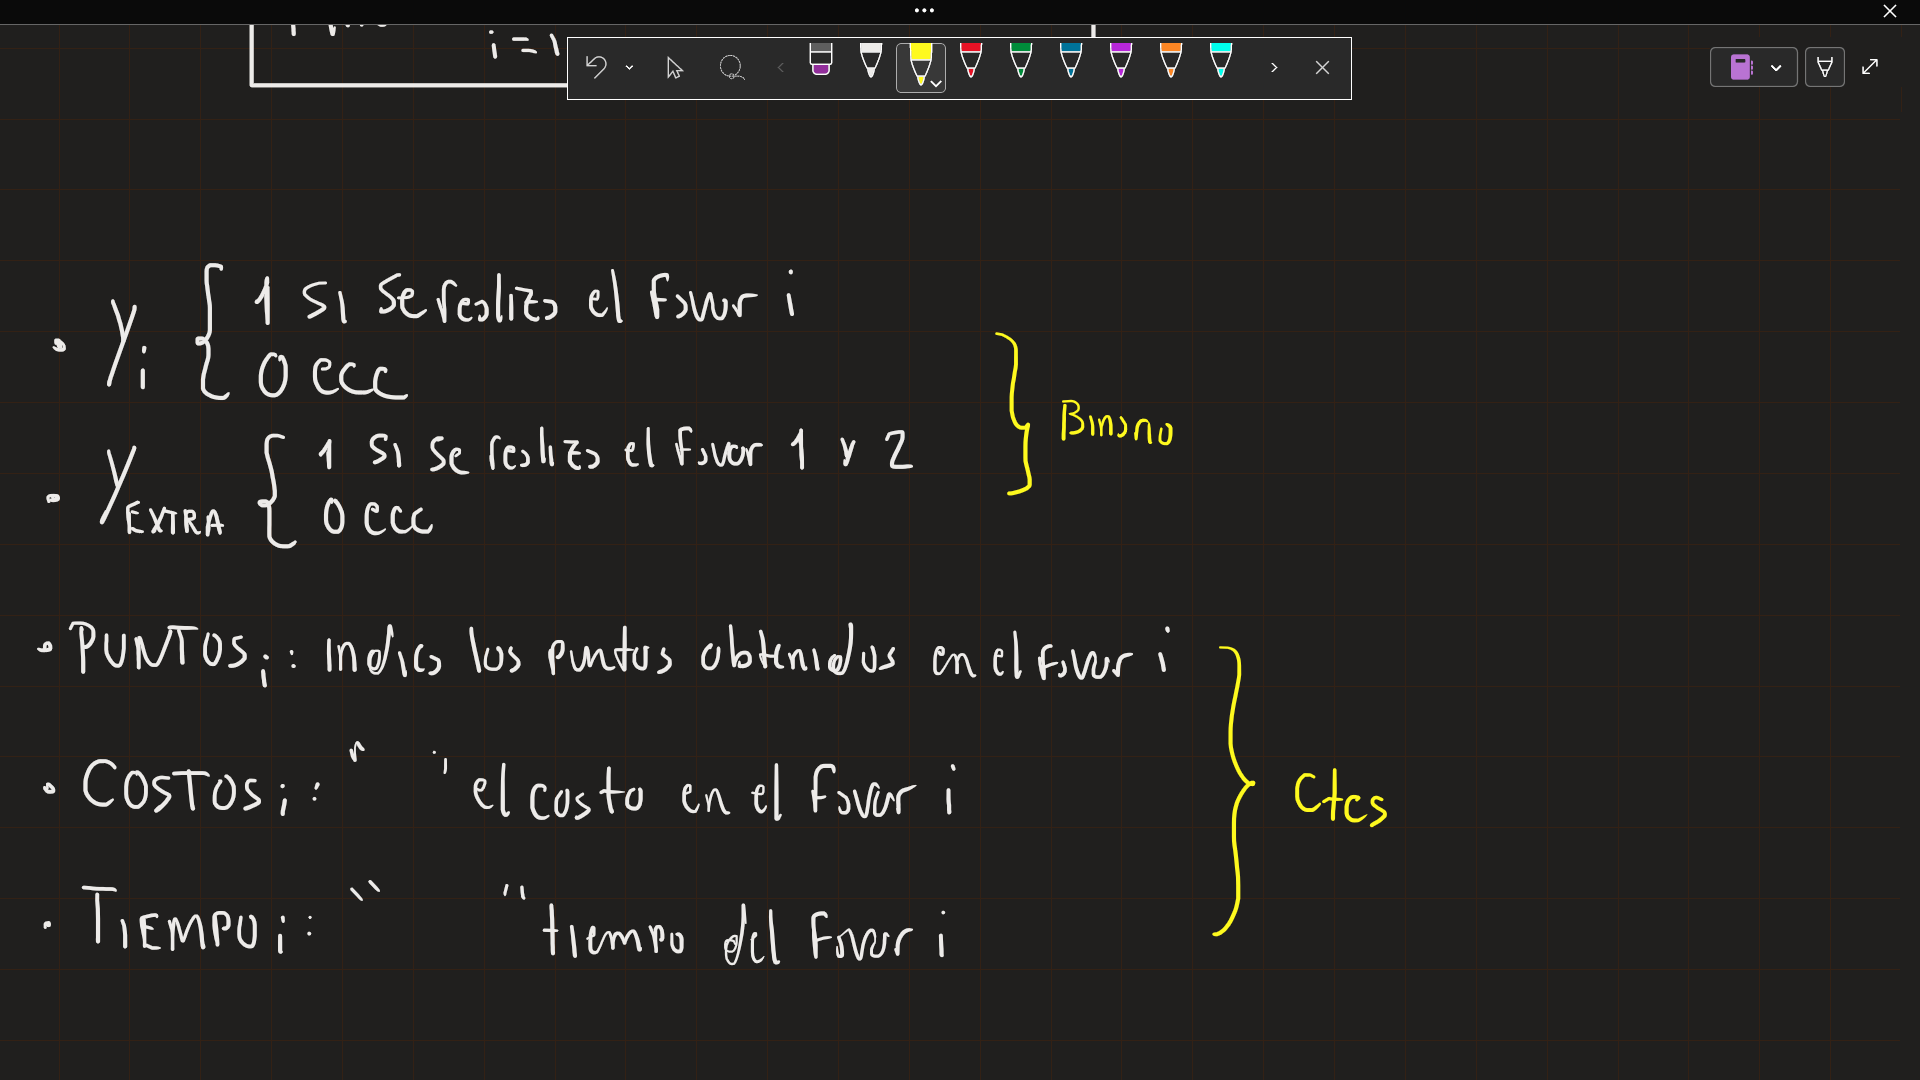 i = 1
• Yi { 1 si se realiza el favor i
0 ecc
Binaria
• YEXTRA { 1 si se realiza el favor 1 y 2
0 ecc
• PUNTOSi: indica los puntos obtenidos en el favor i
• COSTOSi: " " el costo en el favor i
Ctes
• TIEMPOi: " " tiempo del favor i